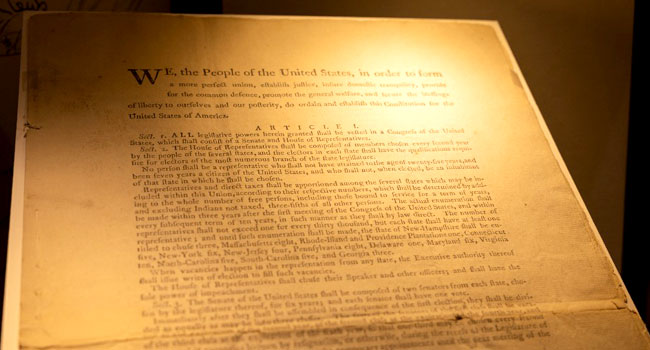 WE, the People of the United States, in order to form
a more perfect union, establish justice, insure domestic tranquility, provide
for the common defence, promote the general welfare, and secure the blessings
of liberty to ourselves and our posterity, do ordain and establish this Constitution for the
United States of America.
ARTICLE I.
Sect. 1. ALL legislative powers herein granted shall be vested in a Congress of the United
States, which shall consist of a Senate and House of Representatives.
Sect. 2. The House of Representatives shall be composed of members chosen every second year
by the people of the several states, and the electors in each state shall have the qualifications requi-
site for electors of the most numerous branch of the state legislature.
No person shall be a representative who shall not have attained to the age of twenty-five years, and
been seven years a citizen of the United States, and who shall not, when elected, be an inhabitant
of that state in which he shall be chosen.
Representatives and direct taxes shall be apportioned among the several states which may be in-
cluded within this Union, according to their respective numbers, which shall be determined by add-
ing to the whole number of free persons, including those bound to service for a term of years,
and excluding Indians not taxed, three-fifths of all other persons. The actual enumeration shall
be made within three years after the first meeting of the Congress of the United States, and within
every subsequent term of ten years, in such manner as they shall by law direct. The number of
representatives shall not exceed one for every thirty thousand, but each state shall have at least one
representative; and until such enumeration shall be made, the state of New-Hampshire shall be en-
titled to chuse three, Massachusetts eight, Rhode-Island and Providence Plantations one, Connecticut
five, New-York six, New-Jersey four, Pennsylvania eight, Delaware one, Maryland six, Virginia
ten, North-Carolina five, South-Carolina five, and Georgia three.
When vacancies happen in the representation from any state, the Executive authority thereof
shall issue writs of election to fill such vacancies.
The House of Representatives shall chuse their Speaker and other officers; and shall have the
sole power of impeachment.
Sect. 3. The Senate of the United States shall be composed of two senators from each state, cho-
sen by the legislature thereof, for six years; and each senator shall have one vote.